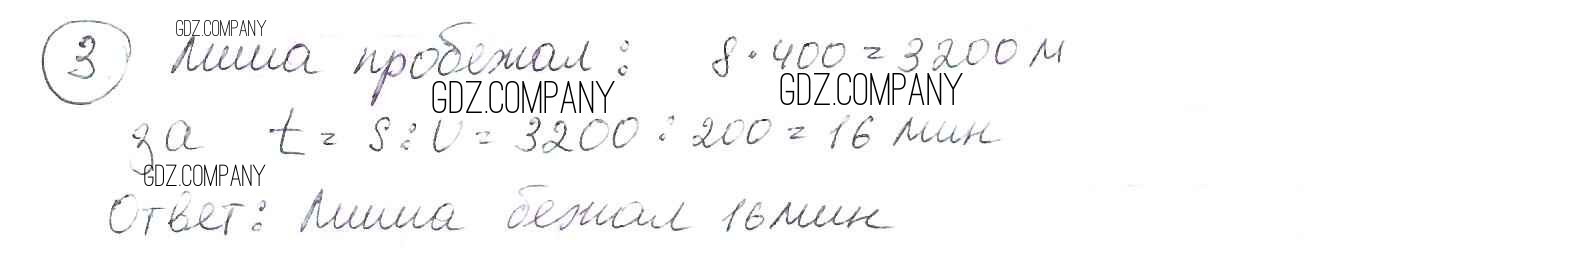 GDZ.COMPANY
3 Миша пробежал: 8·400=3200 м
GDZ.COMPANY GDZ.COMPANY
за t = S:V = 3200:200 = 16 мин
GDZ.COMPANY
Ответ: Миша бежал 16 мин